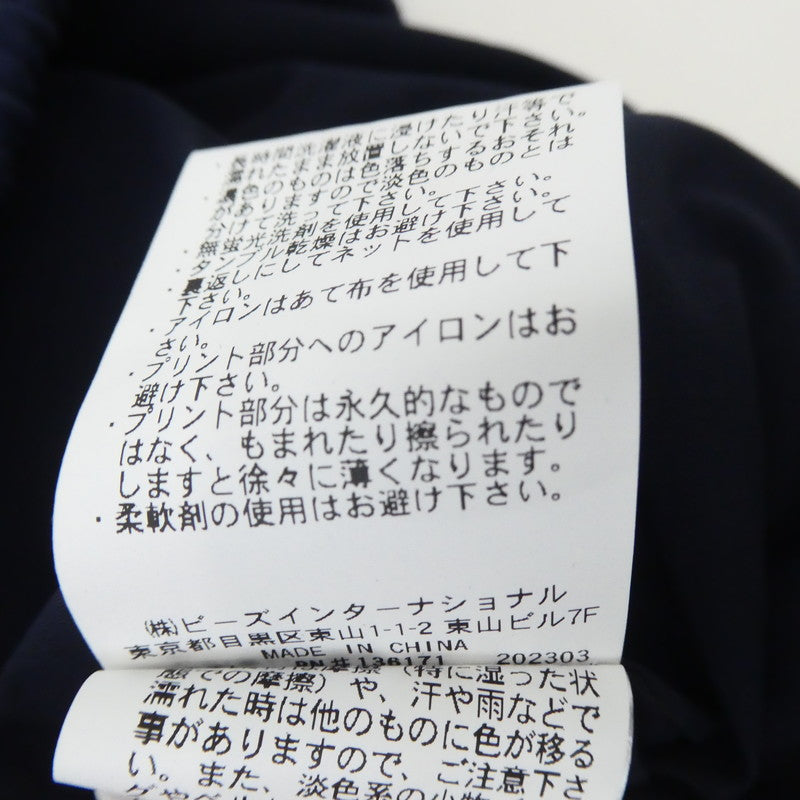 ・長時間洗濯液に浸けたり汗等で
濡れたまま放置しないで下さい。
・濃色のものは色落ちするおそれ
がありますので淡色のものとは
分けて洗って下さい。
・無蛍光洗剤を使用して下さい。
・タンブル乾燥はお避け下さい。
・裏返しにしてネットを使用して
下さい。
・アイロンはあて布を使用して下
さい。
・プリント部分へのアイロンはお
避け下さい。
・プリント部分は永久的なもので
はなく、もまれたり擦られたり
しますと徐々に薄くなります。
・柔軟剤の使用はお避け下さい。
(株)ビーズインターナショナル
東京都目黒区東山1-1-2 東山ビル7F
MADE IN CHINA
RN# 136171 202303
態での摩擦)や、汗や雨などで
濡れた時は他のものに色が移る
事がありますので、ご注意下さ
い。また、淡色系の小物